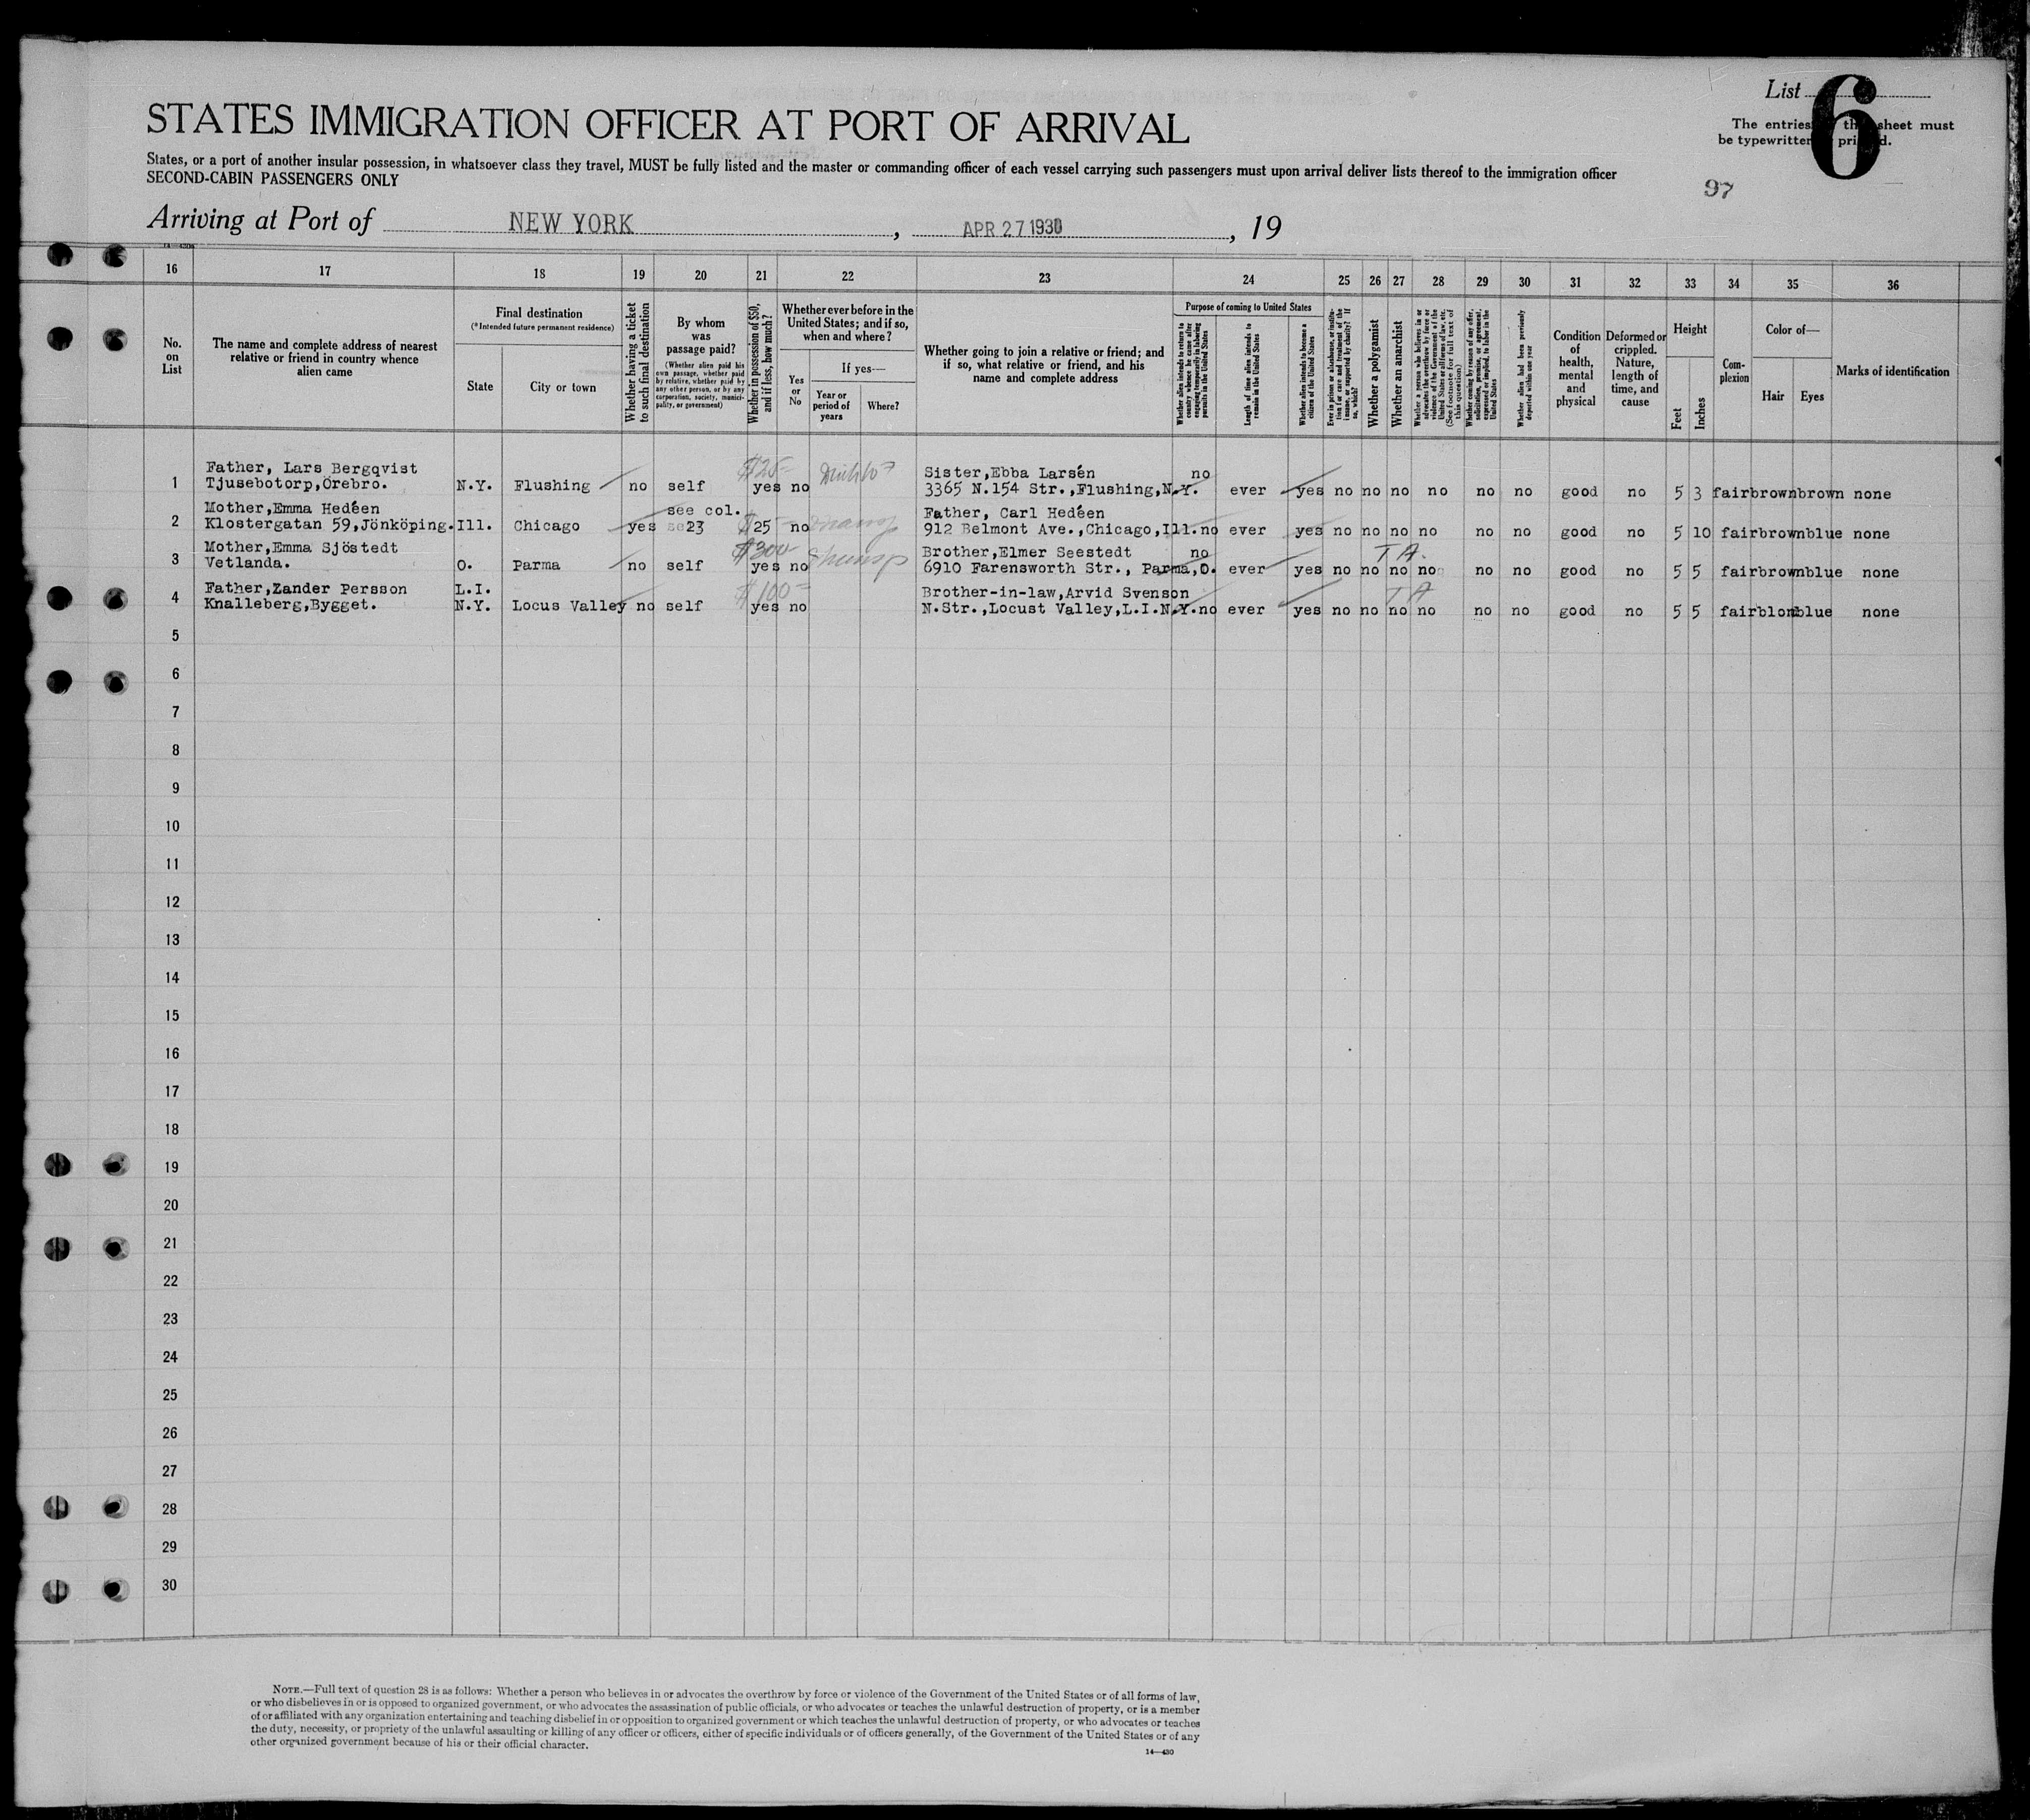 List 6
STATES IMMIGRATION OFFICER AT PORT OF ARRIVAL
The entries this sheet must
be typewritten printed.
States, or a port of another insular possession, in whatsoever class they travel, MUST be fully listed and the master or commanding officer of each vessel carrying such passengers must upon arrival deliver lists thereof to the immigration officer
SECOND-CABIN PASSENGERS ONLY
97
Arriving at Port of NEW YORK, APR 27 1930, 19
16 17 18 19 20 21 22 23 24 25 26 27 28 29 30 31 32 33 34 35 36
No. on List
The name and complete address of nearest relative or friend in country whence alien came
Final destination
(*Intended future permanent residence)
State
City or town
Whether having a ticket to such final destination
By whom was passage paid?
(Whether alien paid his own passage, whether paid by relative, whether paid by any other person, or by any corporation, society, municipality, or government)
Whether in possession of $50, and if less, how much?
Whether ever before in the United States; and if so, when and where?
Yes or No
If yes—
Year or period of years
Where?
Whether going to join a relative or friend; and if so, what relative or friend, and his name and complete address
Purpose of coming to United States
Whether alien intends to return to country whence he came after engaging temporarily in laboring pursuits in the United States
Length of time alien intends to remain in the United States
Whether alien intends to become a citizen of the United States
Ever in prison or almshouse, or institution for care and treatment of the insane, or supported by charity? If so, which?
Whether a polygamist
Whether an anarchist
Whether a person who believes in or advocates the overthrow by force or violence of the Government of the United States or all forms of law, etc. (See footnote for full text of this question)
Whether coming by reason of any offer, solicitation, promise, or agreement, expressed or implied, to labor in the United States
Whether alien had been previously deported within one year
Condition of health, mental and physical
Deformed or crippled. Nature, length of time, and cause
Height
Feet
Inches
Complexion
Color of—
Hair
Eyes
Marks of identification
Father, Lars Bergqvist $25- Sister,Ebba Larsén no
1 Tjusebotorp,Örebro. N.Y. Flushing no self yes no 3365 N.154 Str.,Flushing,N.Y. ever yes no no no no no no good no 5 3 fair brown brown none
Mother,Emma Hedéen see col. Father, Carl Hedéen
2 Klostergatan 59,Jönköping. Ill. Chicago yes 23 $25 no 912 Belmont Ave.,Chicago,Ill. no ever yes no no no no no no good no 5 10 fair brown blue none
Mother,Emma Sjöstedt $300- Brother,Elmer Seestedt no T A.
3 Vetlanda. O. Parma no self yes no 6910 Farensworth Str., Parma,O. ever yes no no no no no no good no 5 5 fair brown blue none
Father,Zander Persson L.I. $100- Brother-in-law,Arvid Svenson T A
4 Knalleberg,Bygget. N.Y. Locus Valley no self yes no N.Str.,Locust Valley,L.I.N.Y. no ever yes no no no no no no good no 5 5 fair blond blue none
5
6
7
8
9
10
11
12
13
14
15
16
17
18
19
20
21
22
23
24
25
26
27
28
29
30
NOTE.—Full text of question 28 is as follows: Whether a person who believes in or advocates the overthrow by force or violence of the Government of the United States or of all forms of law,
or who disbelieves in or is opposed to organized government, or who advocates the assassination of public officials, or who advocates or teaches the unlawful destruction of property, or is a member
of or affiliated with any organization entertaining and teaching disbelief in or opposition to organized government or which teaches the unlawful destruction of property, or who advocates or teaches
the duty, necessity, or propriety of the unlawful assaulting or killing of any officer or officers, either of specific individuals or of officers generally, of the Government of the United States or of any
other organized government because of his or their official character.
14—430